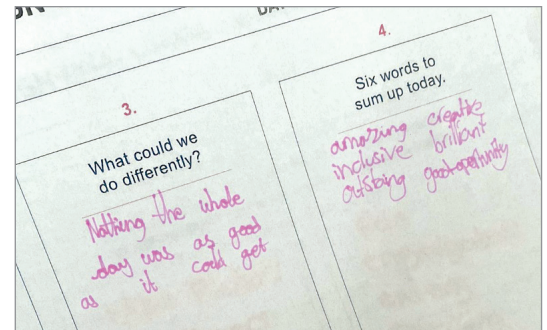 3.
What could we
do differently?
Nothing the whole
day was as good
as it could get
4.
Six words to
sum up today.
amazing creative
inclusive brilliant
outstaing good opertunity